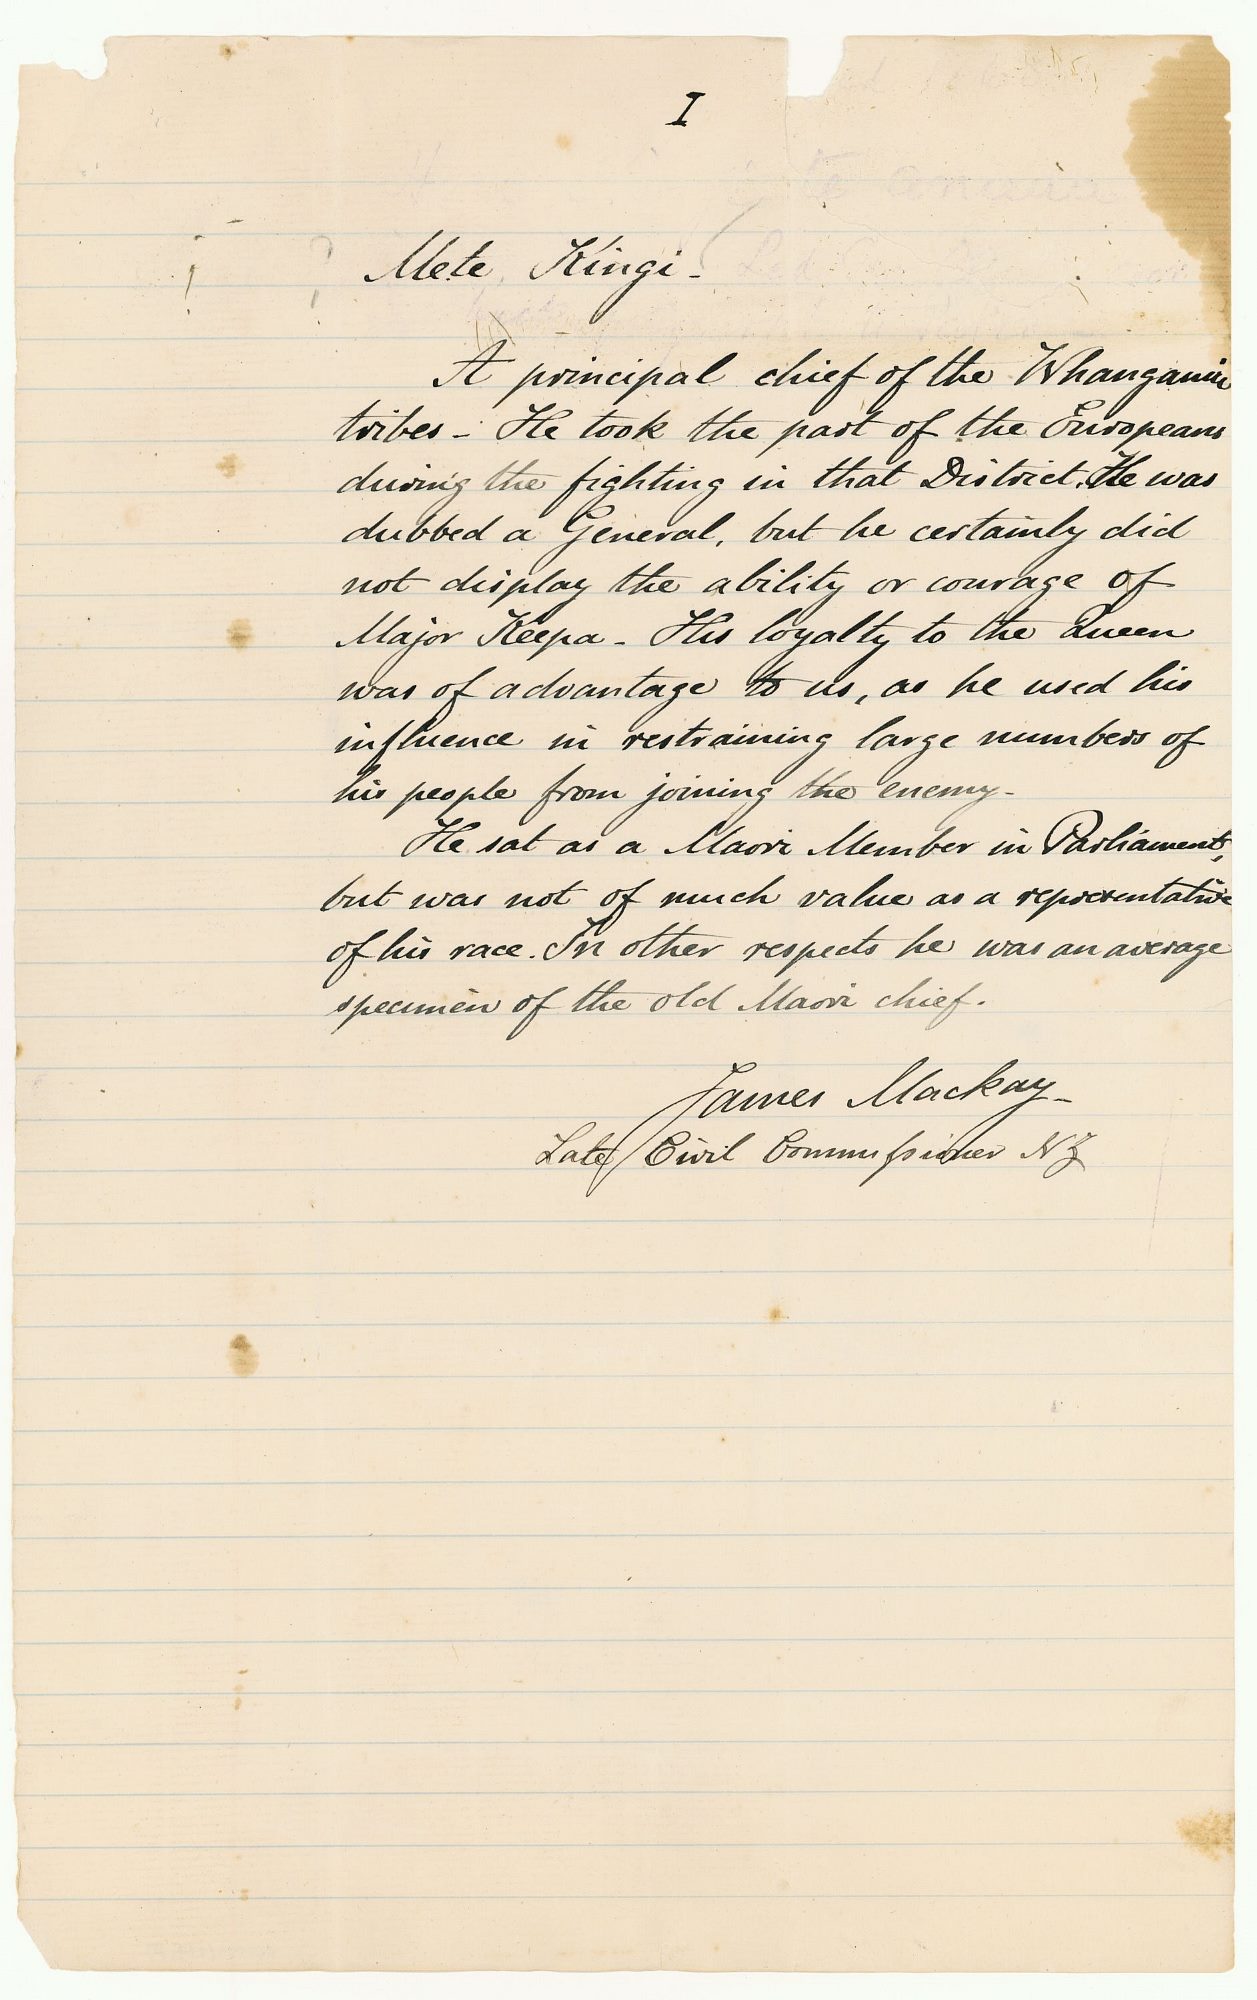 I
Mete Kingi -
A principal chief of the Whanganui
tribes - He took the part of the Europeans
during the fighting in that District. He was
dubbed a General, but he certainly did
not display the ability or courage of
Major Keepa - His loyalty to the Queen
was of advantage to us, as he used his
influence in restraining large numbers of
his people from joining the enemy -
He sat as a Maori Member in Parliament,
but was not of much value as a representative
of his race. In other respects he was an average
specimen of the old Maori chief.
James Mackay -
Late Civil Commissioner NZ